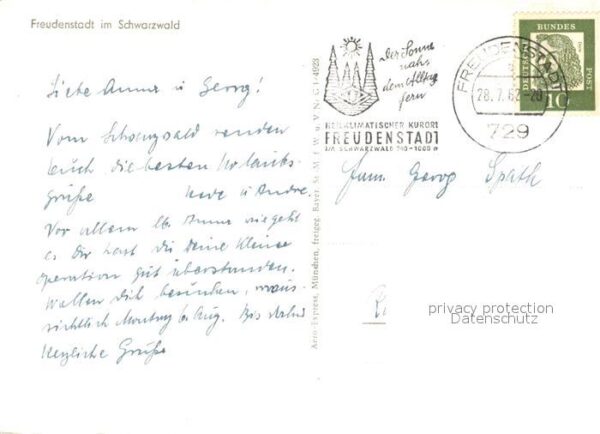 Freudenstadt im Schwarzwald
Liebe Anna u Georg!
Vom Schwarzwald senden
Euch die besten Urlaubs-
grüße Hede u Andre.
Vor allem lb. Anna wie geht
es Dir hast du Deine kleine
operation gut überstanden.
Wollen dich besuchen, voraus-
sichtlich Montag 6. Aug. Bis dahin
Herzliche Grüße
Aero-Express, München, freigeg. Bayer. St. M. f. W. u. V. Nr. G 7/4923
Der Sonne
nah
dem Alltag
fern
HEILKLIMATISCHER KURORT
FREUDENSTADT
IM SCHWARZWALD 740-1000 m
FREUDENSTADT
28.7.62-20
729
DEUTSCHE BUNDESPOST
10
Fam. Georg Späth
privacy protection
Datenschutz